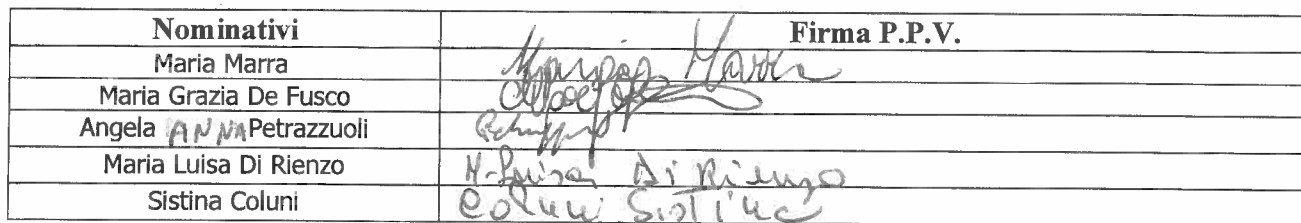 Nominativi Firma P.P.V.
Maria Marra Maria Marra
Maria Grazia De Fusco
Angela ANNA Petrazzuoli
Maria Luisa Di Rienzo M. Luisa Di Rienzo
Sistina Coluni Coluni Sistina